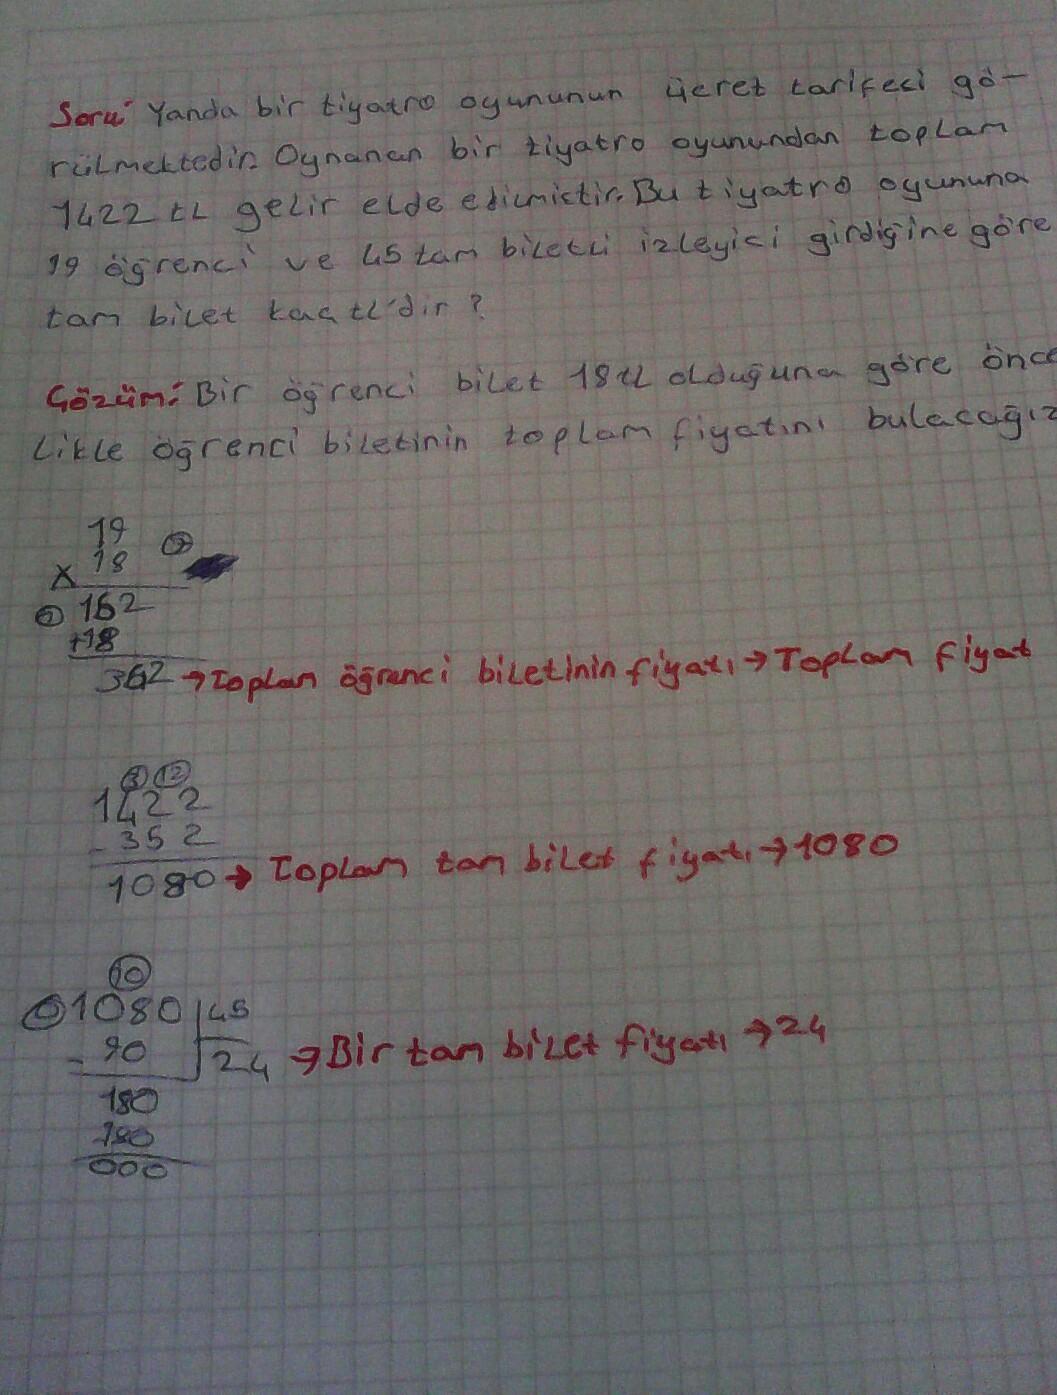 Soru: Yanda bir tiyatro oyununun ücret tarifesi gö-
rülmektedir. Oynanan bir tiyatro oyunundan toplam
1422 tL gelir elde edilmiştir. Bu tiyatro oyununa
19 öğrenci ve 45 tam biletli izleyici girdiğine göre
tam bilet kaç tl'dir ?
Çözüm: Bir öğrenci bilet 18 tl olduğuna göre önce
likle öğrenci biletinin toplam fiyatını bulacağız
19
x 18 7
162
+18
362 → Toplam öğrenci biletinin fiyatı → Toplam fiyat
3 12
1422
- 352
1080 → Toplam tam bilet fiyatı → 1080
10
0 1080 | 45
- 90 24 → Bir tam bilet fiyatı → 24
180
180
000